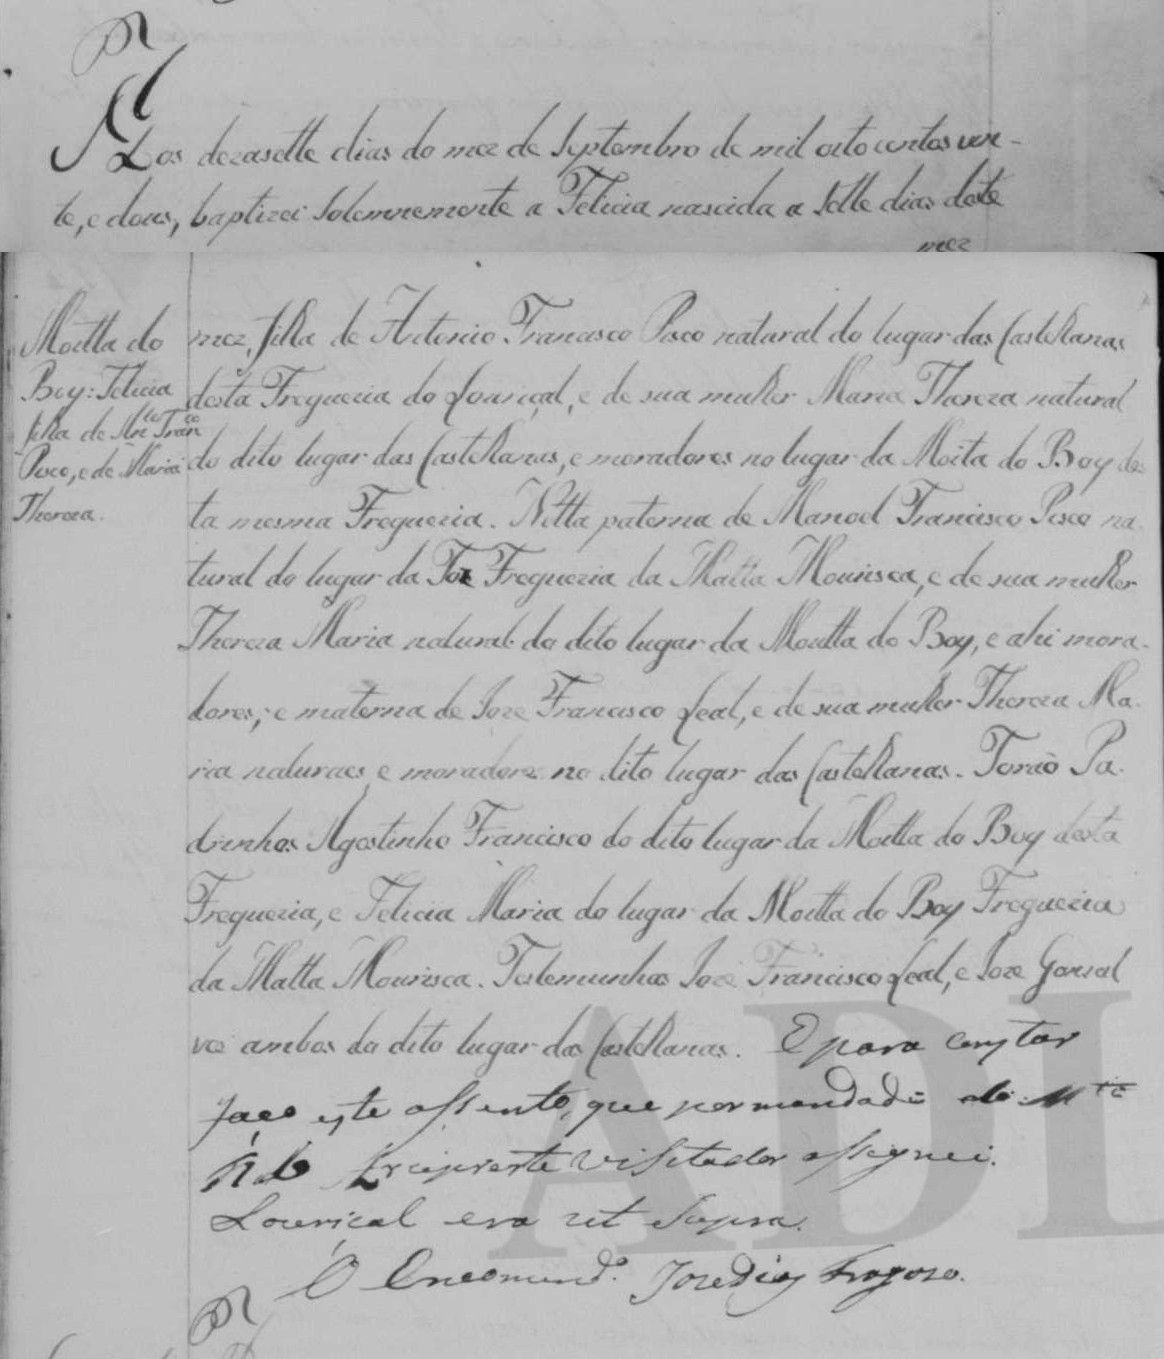 Aos dezasette dias do mez de Septembro de mil oito centos vin-
te, e dous, baptizei solemnemente a Felicia nascida a sette dias deste
mez
Moitta do
Boy: Felicia
filha de Anto Franco
Pisco, e de Maria
Thereza.
mez, filha de Antonio Francisco Pisco natural do lugar das Castelhanas
desta Freguezia do Louriçal, e de sua mulher Maria Thereza natural
do dito lugar das Castelhanas, e moradores no lugar da Moita do Boy des
ta mesma Freguezia. Netta paterna de Manoel Francisco Pisco na
tural do lugar da Foz Freguezia da Matta Mourisca, e de sua mulher
Thereza Maria natural do dito lugar da Moitta do Boy, e ahi mora-
dores; e materna de Joze Francisco Leal, e de sua mulher Thereza Ma-
ria naturaes e moradores no dito lugar das Castelhanas. Forão Pa-
drinhos Agostinho Francisco do dito lugar da Moitta do Boy desta
Freguezia, e Felicia Maria do lugar da Moitta do Boy Freguezia
da Matta Mourisca. Testemunhas Joze Francisco Leal, e Joze Gonsal
ves ambos do dito lugar das Castelhanas. E para constar
faço este assento, que por mandado do Mto
Rdo Arcipreste Visitador assignei.
Louriçal era ut supra.
O Encomendo. Joze Dias Fragozo.
ADL